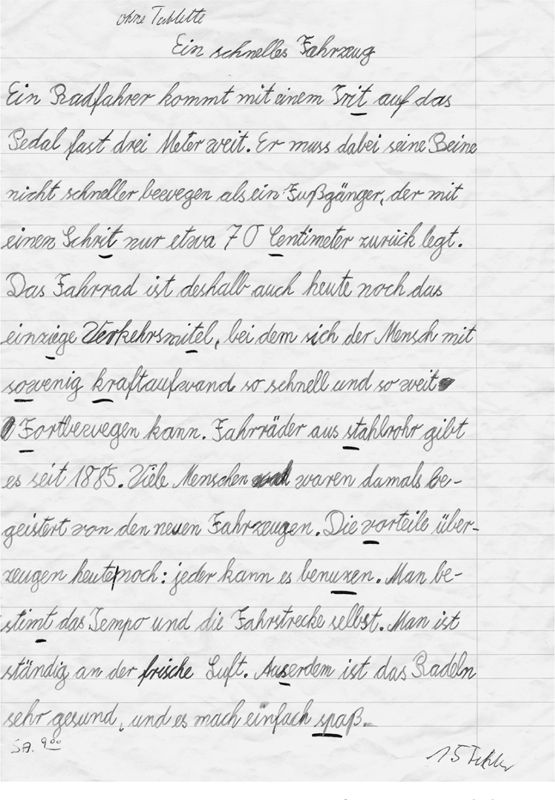 ohne Tablette
Ein schnelles Fahrzeug
Ein Radfahrer kommt mit einem Trit auf das
Pedal fast drei Meter weit. Er muss dabei seine Beine
nicht schneller bewegen als ein Fußgänger, der mit
einen Schrit nur etwa 70 Centimeter zurück legt.
Das Fahrrad ist deshalb auch heute noch das
einziege Verkehrsmitel, bei dem sich der Mensch mit
sowenig kraftaufwand so schnell und so weit
Fortbewegen kann. Fahrräder aus stahlrohr gibt
es seit 1885. Viele Menschen waren damals be-
geistert von den neuen Fahrzeugen. Die vorteile über-
zeugen heute noch: jeder kann es benuzen. Man be-
stimt das Tempo und die Fahrstrecke selbst. Man ist
ständig an der frische Luft. Auserdem ist das Radeln
sehr gesund, und es mach einfach spaß.
SA. 9 00
15 Fehler